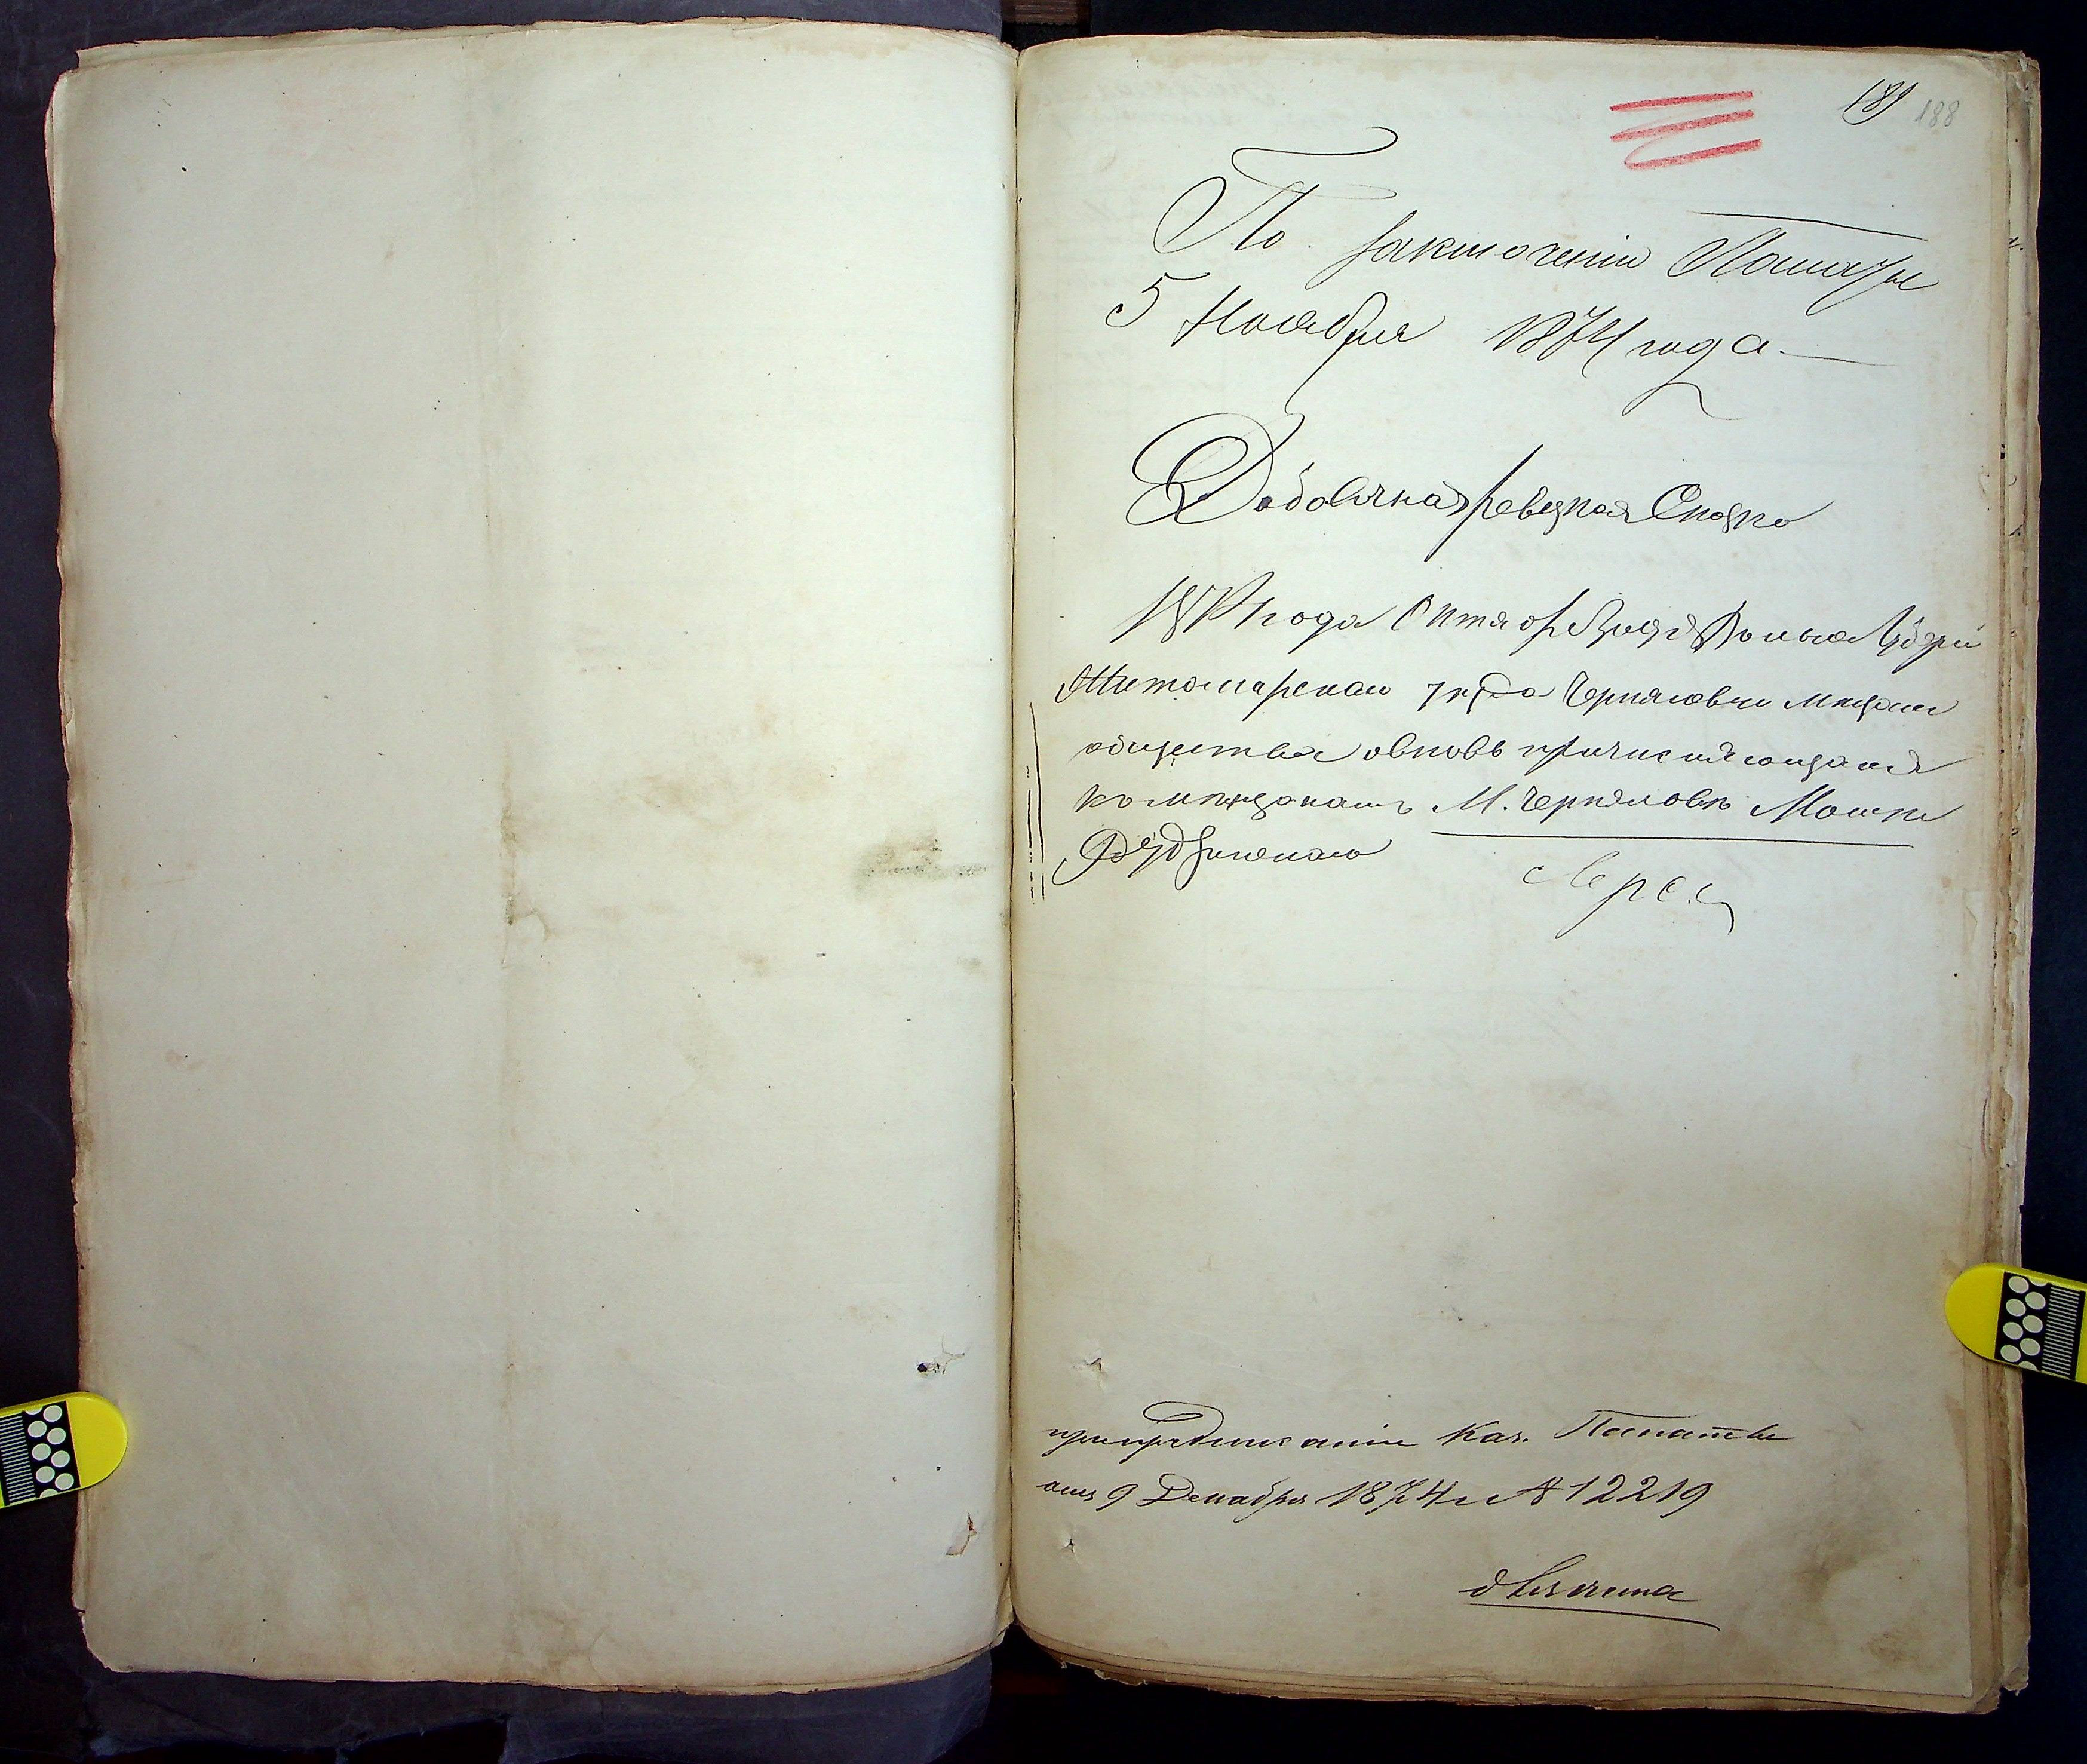 189 188
По заключенію Палаты
5 Ноября 1874 года
Добавочная ревизкая Сказка
187 года Октября дня Волын Губерн
Житомирскаго уезда Черняховск мещан
общества о вновь причисляющемся
к мещанамъ М. Черняховъ Мошк

при предписаніи Каз. Палаты
отъ 9 Декабря 1874 г № 12219